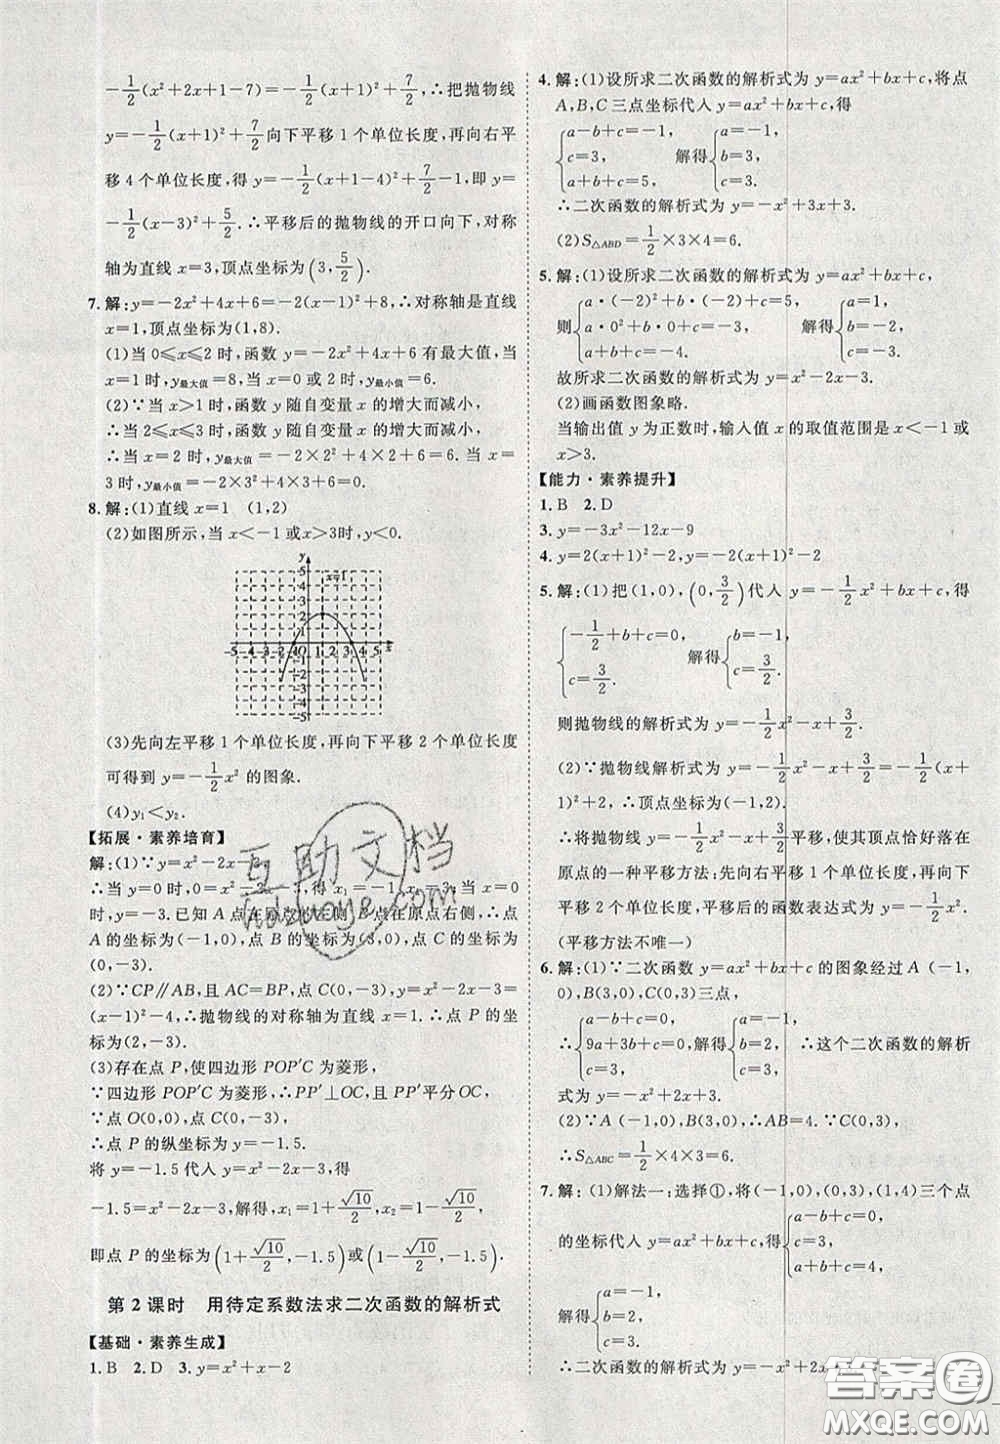 -1/2(x²+2x+1-7)=-1/2(x+1)²+7/2,∴把抛物线
y=-1/2(x+1)²+7/2向下平移1个单位长度,再向右平
移4个单位长度,得y=-1/2(x+1-4)²+7/2-1,即y=
-1/2(x-3)²+5/2.∴平移后的抛物线的开口向下,对称
轴为直线x=3,顶点坐标为(3,5/2).
7.解:y=-2x²+4x+6=-2(x-1)²+8,∴对称轴是直线
x=1,顶点坐标为(1,8).
(1)当0≤x≤2时,函数y=-2x²+4x+6有最大值,当
x=1时,y最大值=8,当x=0或2时,y最小值=6.
(2)∵当x>1时,函数y随自变量x的增大而减小,
∴当2≤x≤3时,函数y随自变量x的增大而减小,
∴当x=2时,y最大值=-2×2²+4×2+6=6.当
x=3时,y最小值=-2×3²+4×3+6=0.
8.解:(1)直线x=1 (1,2)
(2)如图所示,当x<-1或x>3时,y<0.
y
x=1
5
4
3
2
1
-5-4-3-2-1O 1 2 3 4 5 x
-1
-2
-3
-4
-5
(3)先向左平移1个单位长度,再向下平移2个单位长度
可得到y=-1/2x²的图象.
(4)y₁<y₂.
【拓展·素养培育】
解:(1)∵y=x²-2x-3,
∴当y=0时,0=x²-2x-3,得x₁=-1,x₂=3,当x=0时,
y=-3.已知A点在原点左侧,B点在原点右侧,∴点
A的坐标为(-1,0),点B的坐标为(3,0),点C的坐标为
(0,-3).
(2)∵CP∥AB,且AC=BP,点C(0,-3),y=x²-2x-3=
(x-1)²-4,∴抛物线的对称轴为直线x=1.∴点P的坐标为
(2,-3).
(3)存在点P,使四边形POP′C为菱形,
∵四边形POP′C为菱形,∴PP′⊥OC,且PP′平分OC,
∵点O(0,0),点C(0,-3),
∴点P的纵坐标为y=-1.5.
将y=-1.5代入y=x²-2x-3,得
-1.5=x²-2x-3,解得,x₁=1+√10/2,x₂=1-√10/2,
即点P的坐标为(1+√10/2,-1.5)或(1-√10/2,-1.5).
第2课时 用待定系数法求二次函数的解析式
【基础·素养生成】
1.B 2.D 3.y=x²+x-2
4.解:(1)设所求二次函数的解析式为y=ax²+bx+c,将点
A,B,C三点坐标代入y=ax²+bx+c,得
{a-b+c=-1, {a=-1,
c=3, 解得 b=3,
a+b+c=5, c=3.
∴二次函数的解析式为y=-x²+3x+3.
(2)S△ABD=1/2×3×4=6.
5.解:(1)设所求二次函数的解析式为y=ax²+bx+c,
{a·(-2)²+b·(-2)+c=5, {a=1,
则 a·0²+b·0+c=-3, 解得 b=-2,
a+b+c=-4. c=-3.
故所求二次函数的解析式为y=x²-2x-3.
(2)画函数图象略.
当输出值y为正数时,输入值x的取值范围是x<-1或
x>3.
【能力·素养提升】
1.B 2.D
3.y=-3x²-12x-9
4.y=2(x+1)²-2,y=-2(x-1)²-2
5.解:(1)把(1,0),(0,3/2)代入y=-1/2x²+bx+c,得
{-1/2+b+c=0, {b=-1,
c=3/2. 解得 c=3/2.
则抛物线的解析式为y=-1/2x²-x+3/2.
(2)∵抛物线解析式为y=-1/2x²-x+3/2=-1/2(x+
1)²+2,∴顶点坐标为(-1,2).
∴将抛物线y=-1/2x²-x+3/2平移,使其顶点恰好落在
原点的一种平移方法:先向右平移1个单位长度,再向下
平移2个单位长度,平移后的函数表达式为y=-1/2x².
(平移方法不唯一)
6.解:(1)∵二次函数y=ax²+bx+c的图象经过A(-1,
0),B(3,0),C(0,3)三点,
{a-b+c=0, {a=-1,
∴ 9a+3b+c=0,解得 b=2, ∴这个二次函数的解析
c=3, c=3.
式为y=-x²+2x+3.
(2)∵A(-1,0),B(3,0),∴AB=4,
∴S△ABC=1/2×4×3=6.
7.解:(1)解法一:选择①,将(-1,0),(0,3),(1,4)三个点
的坐标代入y=ax²+bx+c,得{a-b+c=0,
c=3,
a+b+c=4,
解得{a=-1,
b=2,
c=3.
∴二次函数的解析式为y=-x²+2x
互助文档
hdzuoye.com
答案圈
MXQE.COM